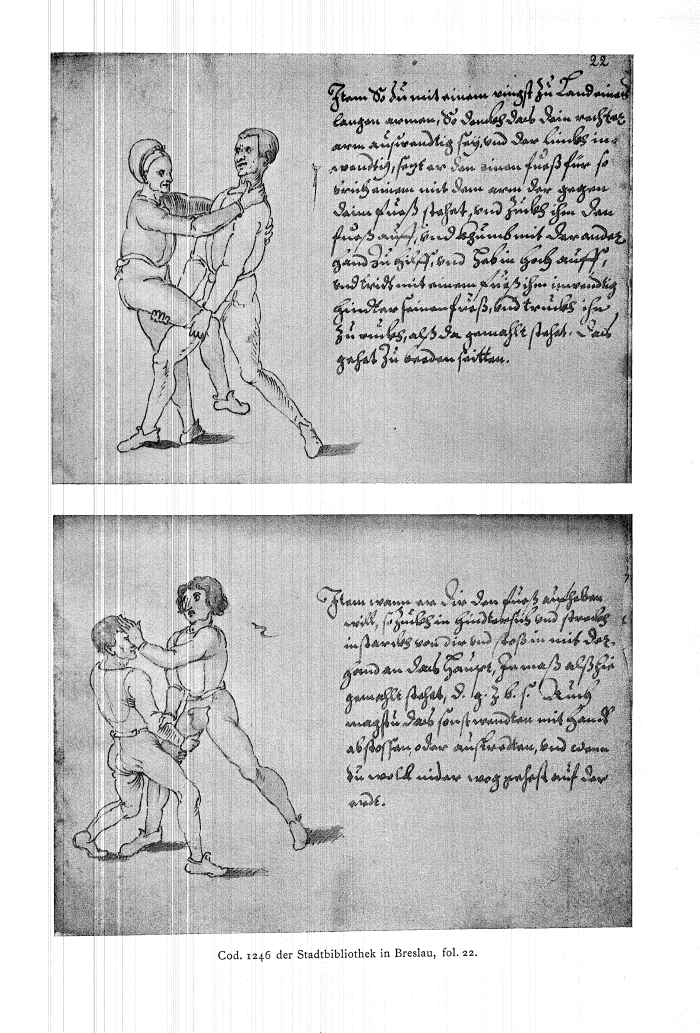 22
Item So du mit einem ringst zu Land einen
langen armen, So denckh das dein rechter
arm auswendtig sey, und der linckh in-
wendtig, sezt er den einen fueß für so
einem mit dem arm der gegen
deim fueß stehet, und zückh ihm den
fueß auff, und khumb mit der ander
hand zu hilff, und heb in hoch auff,
und tridt mit einem fueß ihm inwendig
hindter seinen fueß, und truckh ihn
zu ruckh, alß da gemahlt stehet. Das
gehet zu beeden seitten.
Item wann er dir den fueß aufheben
will, so zückh in hindtersich und streckh
in starckh von dir und stoß in mit der
hand an das Haupt, Inmaß alß hie
gemahlt stehet, d. g. z b. s. Auch
magstu das sonst wendten mit handt
abstossen oder auftretten, und wenn
du wolst nider gehest auf der
erdt.
Cod. 1246 der Stadtbibliothek in Breslau, fol. 22.